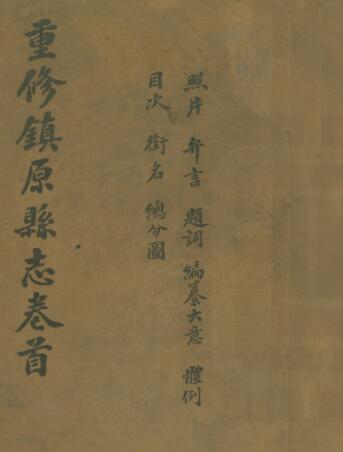 重修鎮原縣志卷首
照片 弁言 題詞 編纂大意 體例
目次 銜名 總分圖